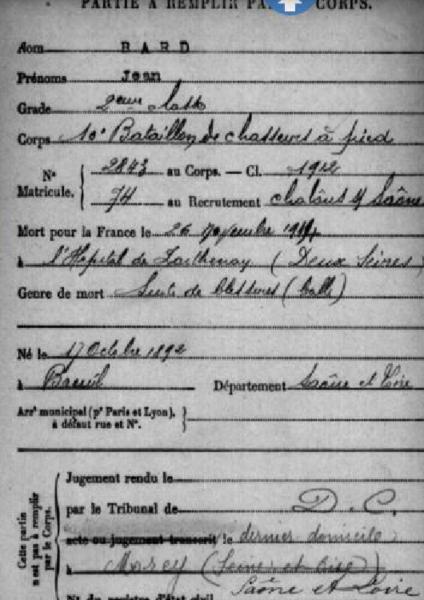 PARTIE À REMPLIR PA CORPS.
Nom BARD
Prénoms Jean
Grade 2eme classe
Corps 10e Bataillon de chasseurs à pied
N° Matricule. { 2843 au Corps. — Cl. 1912
74 au Recrutement Chalons s/ Saône
Mort pour la France le 26 Novembre 1914
à l'Hopital de Parthenay (Deux Sèvres)
Genre de mort Suite de blessures (balle)
Né le 17 Octobre 1892
à Département Saône et Loire
Arr' municipal (p' Paris et Lyon), à défaut rue et N°. }
Cette partie n'est pas à remplir par le Corps.
Jugement rendu le
par le Tribunal de D. C.
acte ou jugement transcrit le dernier domicile
à Morey (Seine et Oise)
Saône et Loire
N° du registre d'état civil